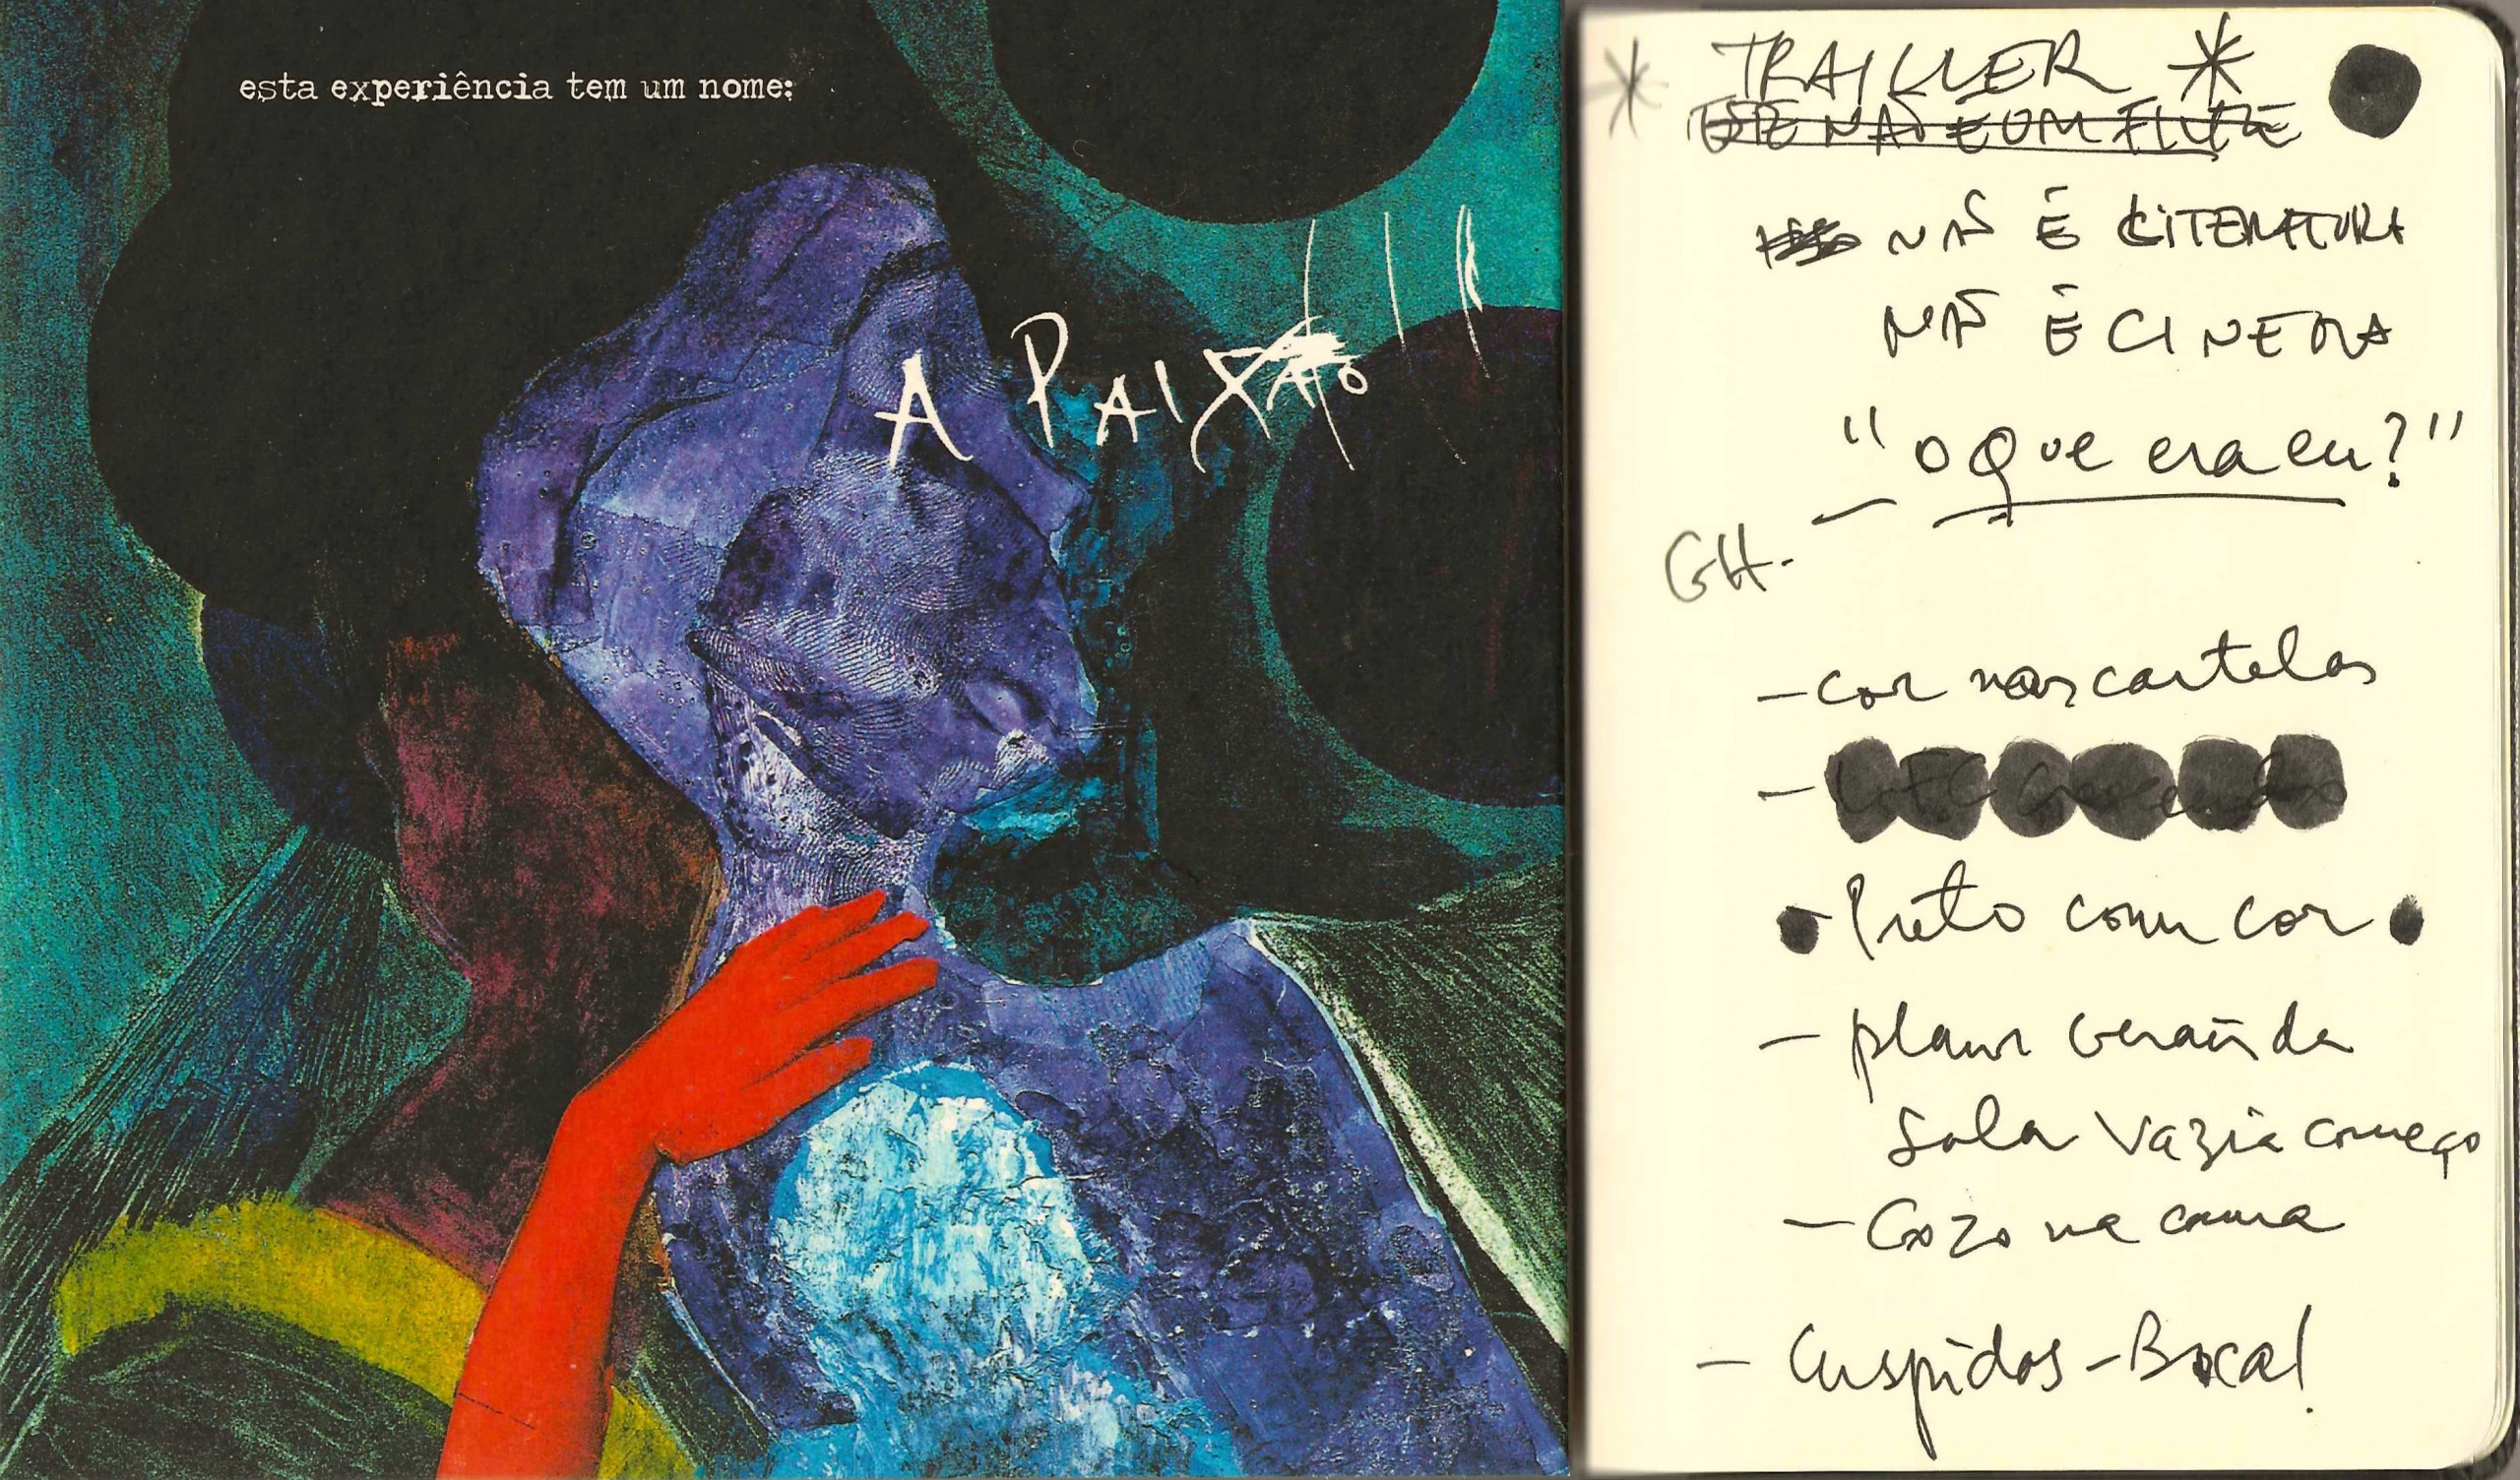 esta experiência tem um nome:
A PAIXÃO
* TRAILLER *
ESTE NÃO É UM FILME
NÃO É LITERATURA
NÃO É CINEMA
"o que era eu?"
GH.
- cor nas cartelas
-
Preto com cor
- plano geral da
sala vazia começo
- Gozo na cama
- Cuspidas - Boca!